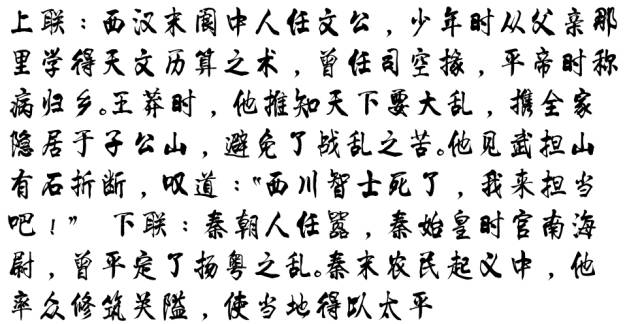 上联：西汉末阆中人任文公，少年时从父亲那
里学得天文历算之术，曾任司空掾，平帝时称
病归乡。王莽时，他推知天下要大乱，携全家
隐居于子公山，避免了战乱之苦。他见武担山
有石折断，叹道："西川智士死了，我来担当
吧！" 下联：秦朝人任嚣，秦始皇时官南海
尉，曾平定了扬粤之乱。秦末农民起义中，他
率众修筑关隘，使当地得以太平